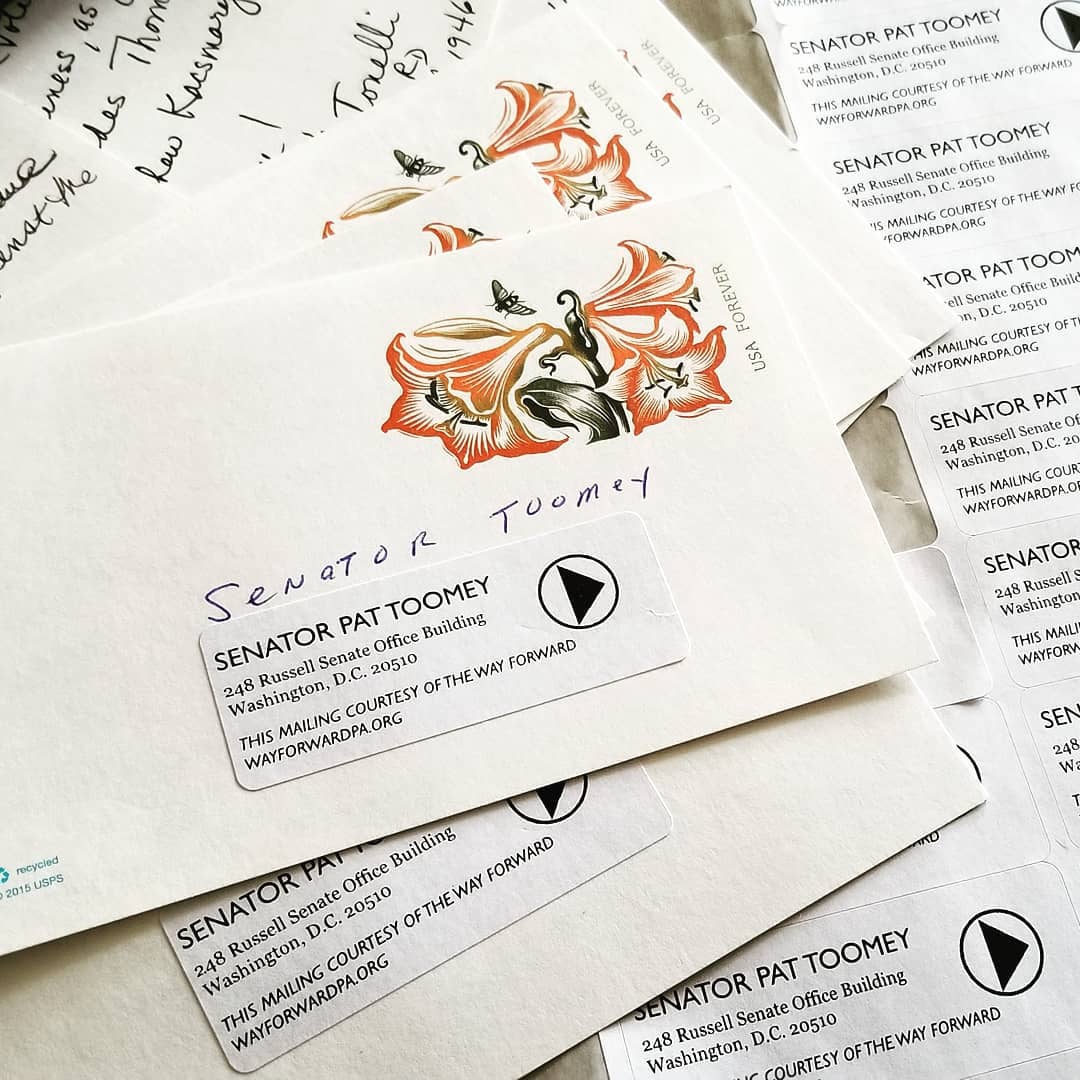 iness, as
des Thom
how Kassmary
Tonelli
RD
1946
enst the
USA FOREVER
USA FOREVER
USA FOREVER
SENATOR TOOMEY
SENATOR PAT TOOMEY
248 Russell Senate Office Building
Washington, D.C. 20510
THIS MAILING COURTESY OF THE WAY FORWARD
WAYFORWARDPA.ORG
recycled
© 2015 USPS
SENATOR PAT TOOMEY
248 Russell Senate Office Building
Washington, D.C. 20510
THIS MAILING COURTESY OF THE WAY FORWARD
WAYFORWARDPA.ORG
WAYFORWARDPA.ORG
SENATOR PAT TOOMEY
248 Russell Senate Office Building
Washington, D.C. 20510
THIS MAILING COURTESY OF THE WAY FORWARD
WAYFORWARDPA.ORG
SENATOR PAT TOOMEY
248 Russell Senate Office Building
Washington, D.C. 20510
THIS MAILING COURTESY OF THE WAY FO
WAYFORWARDPA.ORG
ATOR PAT TOOM
ell Senate Office Bu
n, D.C. 20510
HIS MAILING COURTESY OF T
WAYFORWARDPA.ORG
SENATOR PAT T
248 Russell Senate Of
Washington, D.C. 205
THIS MAILING COUR
WAYFORWARDPA.O
SENATOR
248 Russell
Washington
THIS MAILI
WAYFORW
SEN
248
Wa
ARD
SENATOR PAT TOOMEY
248 Russell Senate Office Building
Washington, D.C. 20510
THIS MAILING COURTESY OF THE WAY FORWARD